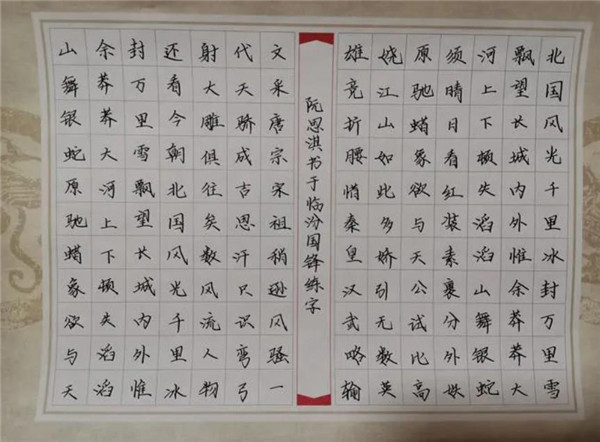 北国风光千里冰封万里雪
飘望长城内外惟余莽莽大
河上下顿失滔滔山舞银蛇
须晴日看红装素裹分外妖
原驰蜡象欲与天公试比高
娆江山如此多娇引无数英
雄竞折腰惜秦皇汉武略输
阮思淇书于临汾国锋练字
文采唐宗宋祖稍逊风骚一
代天骄成吉思汗只识弯弓
射大雕俱往矣数风流人物
还看今朝北国风光千里冰
封万里雪飘望长城内外惟
余莽莽大河上下顿失滔滔
山舞银蛇原驰蜡象欲与天